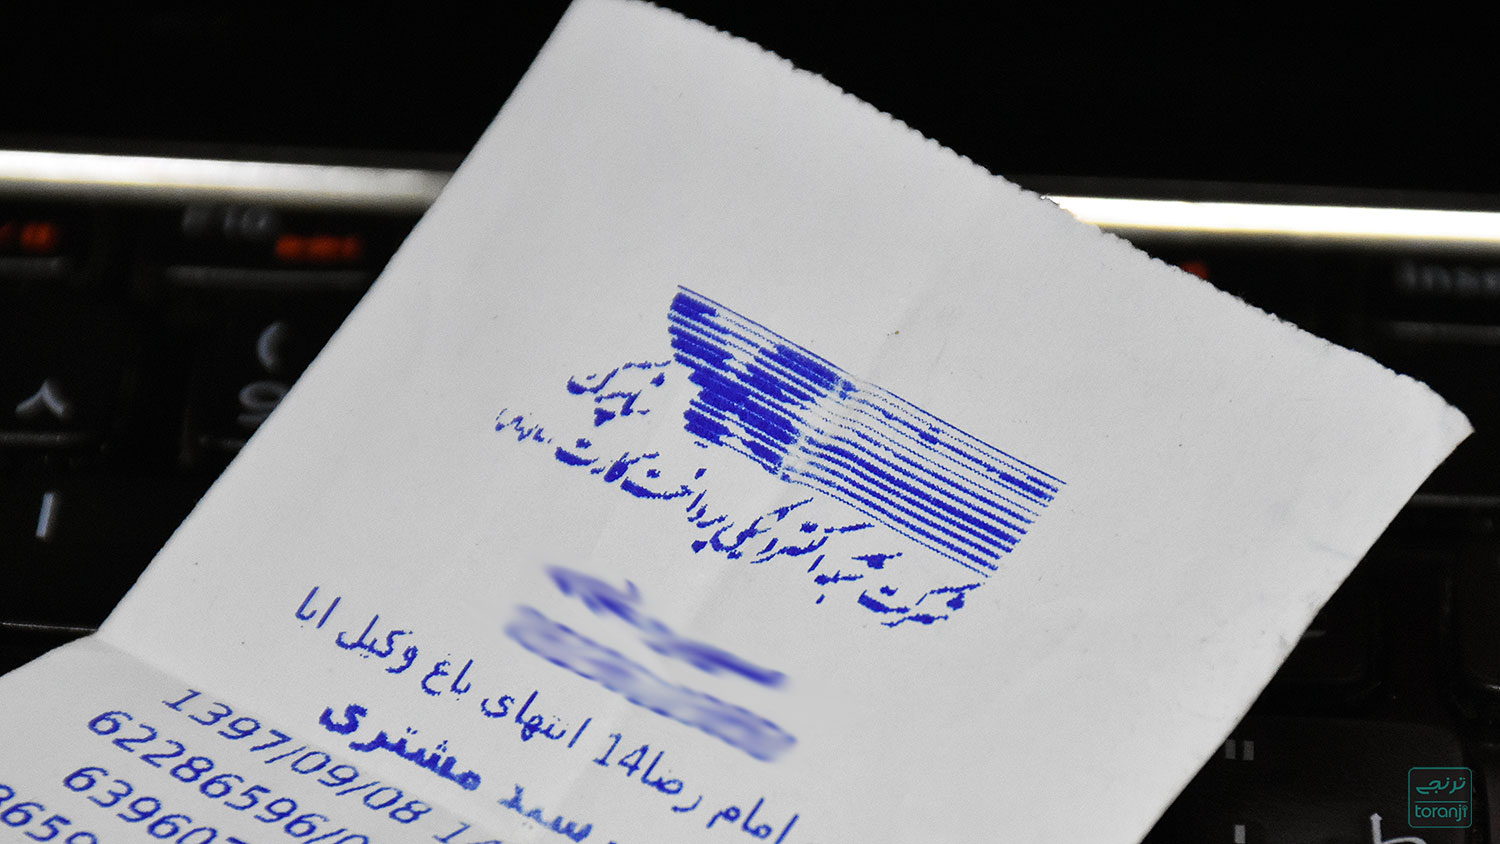 شاپرک
شرکت شبکه الکترونیکی پرداخت کارت
امام رضا14 انتهای باغ وکیل انا
رسید مشتری
1397/09/08
62286596/0
639607
8659
F10
Inse
ترنجی
toranji